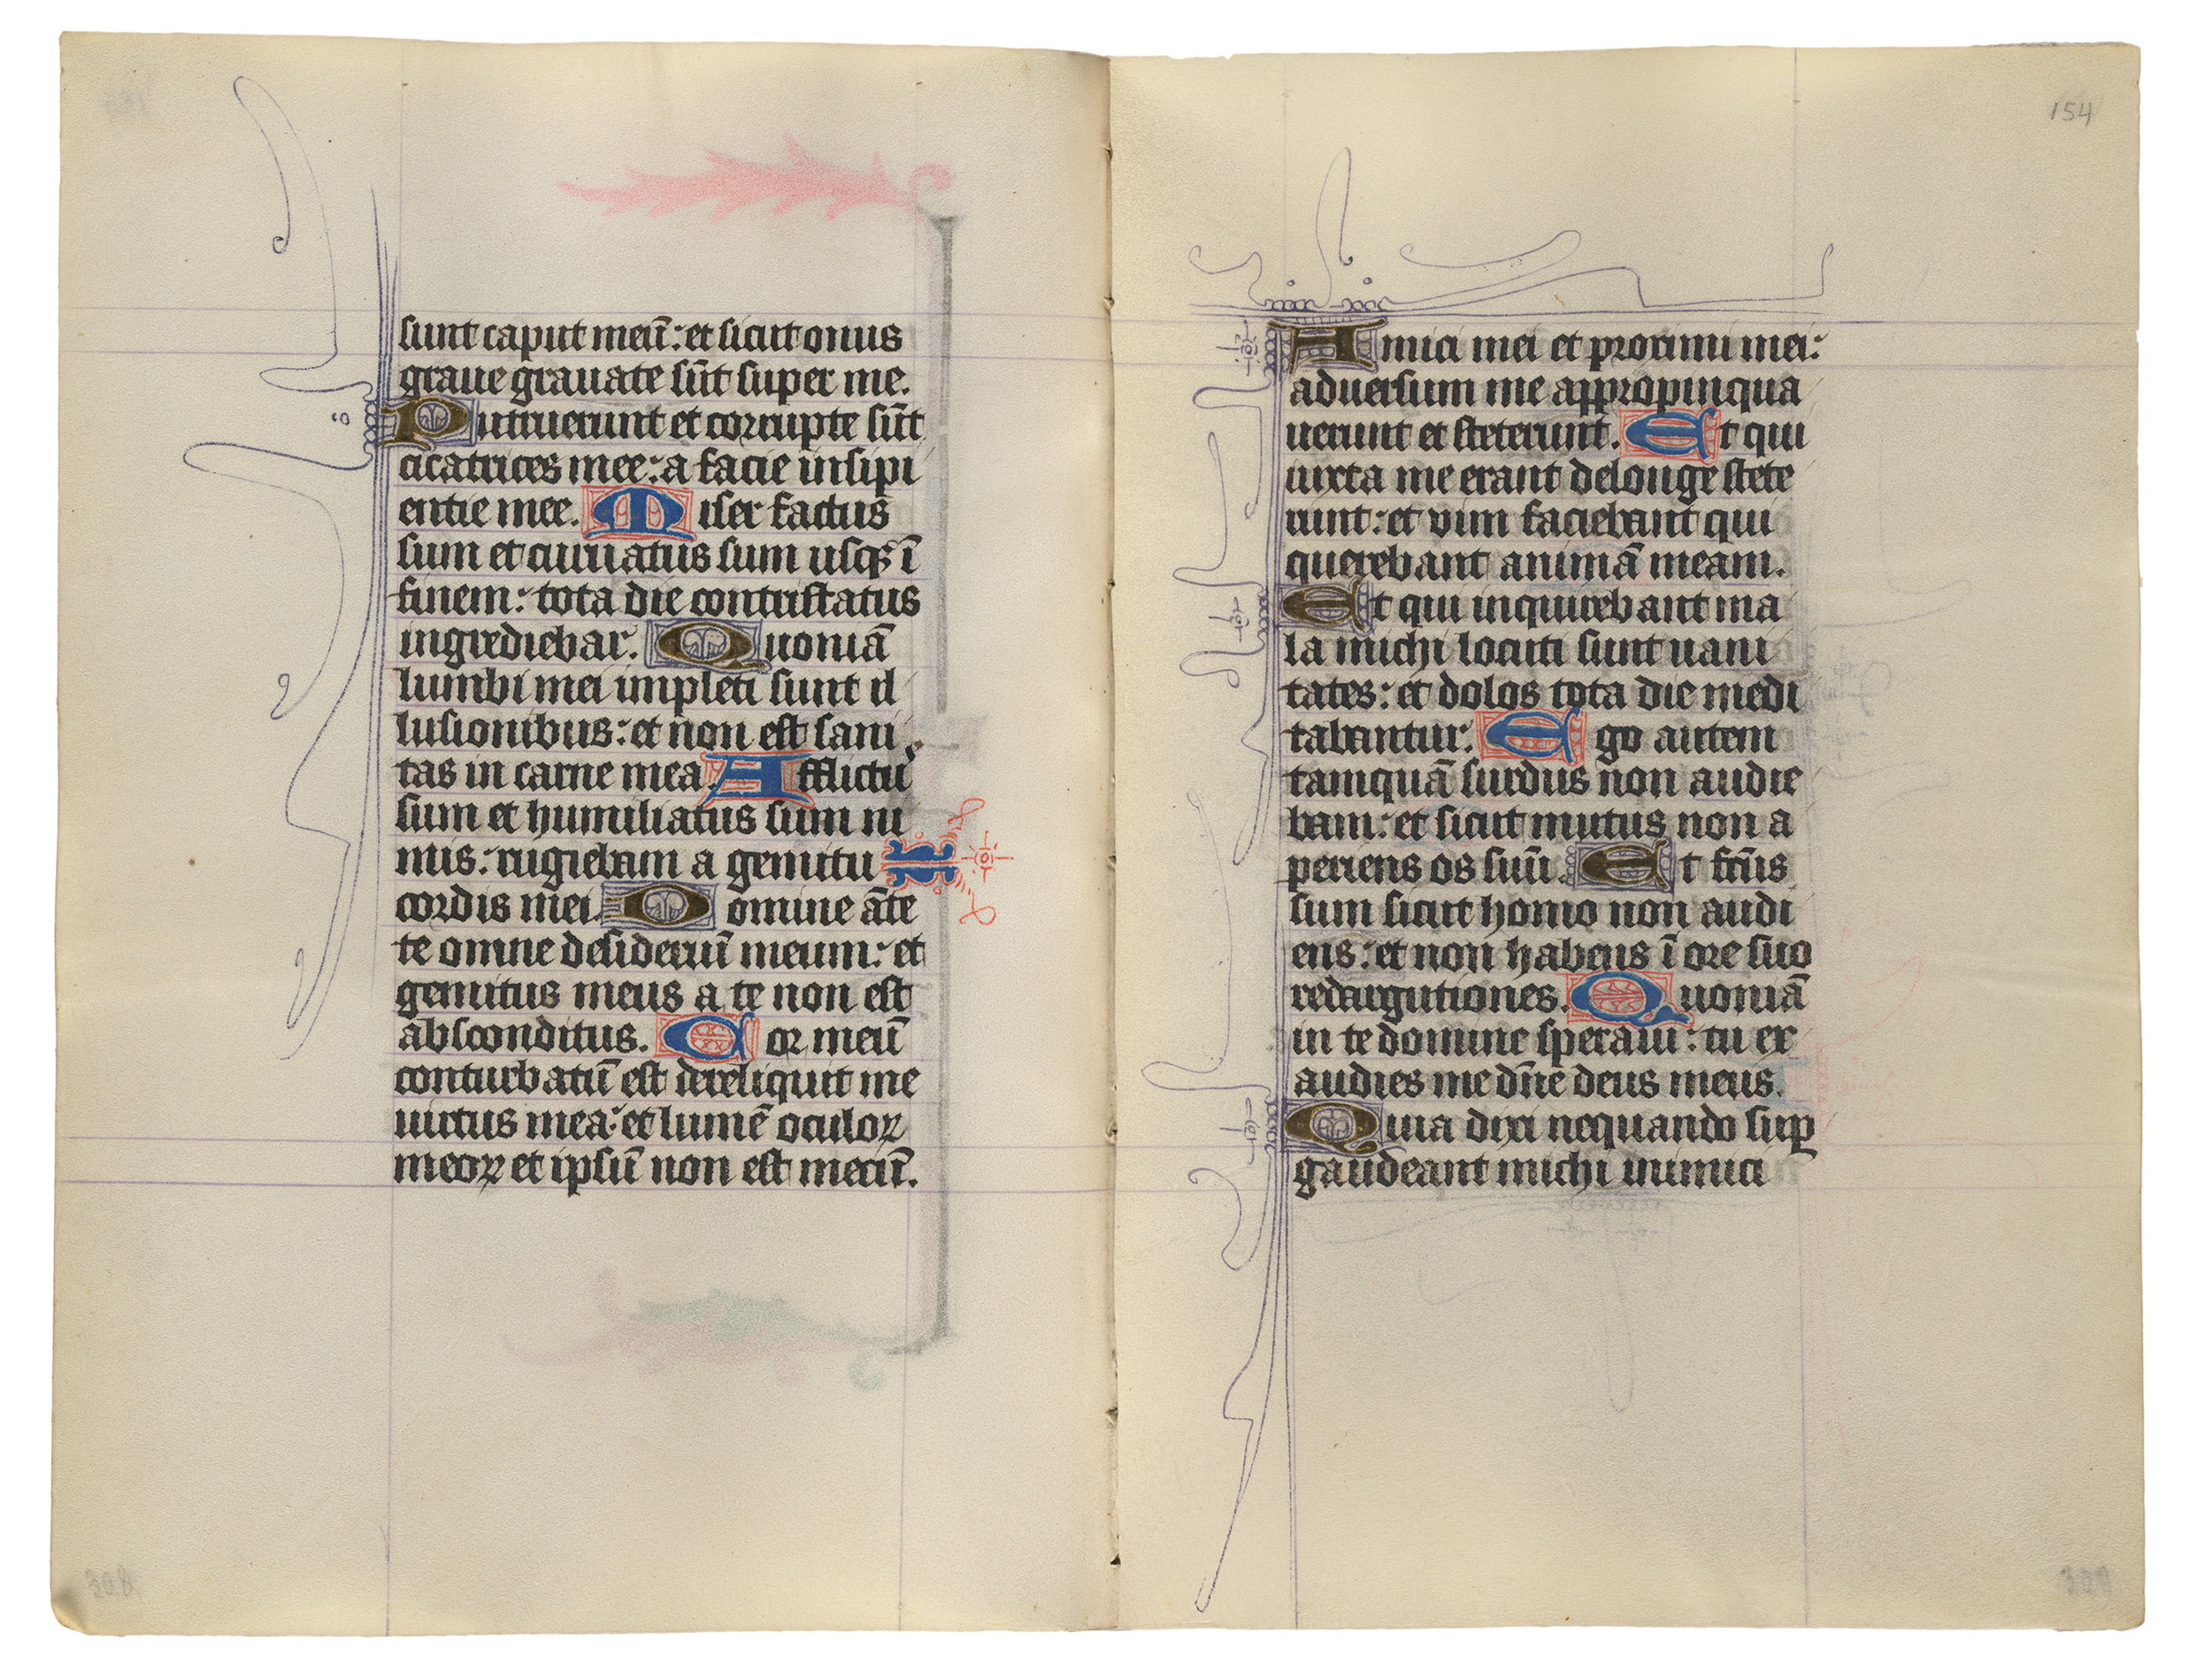 sunt caput meū: et sicut onus
graue grauate sūt super me.
Putruerunt et corrupte sūt
cicatrices mee: a facie insipi
entie mee. Miser factus
sum et curuatus sum usq; ī
finem: tota die contristatus
ingrediebar. Quoniā
lumbi mei impleti sunt il
lusionibus: et non est sani
tas in carne mea. Afflictu
sum et humiliatus sum ni
mis: rugiebam a gemitu
cordis mei. Domine āte
te omne desideriū meum: et
gemitus meus a te non est
absconditus. Cor meū
conturbatū est dereliquit me
uirtus mea: et lumē oculoꝝ
meoꝝ et ipsū non est mecū.
154
Amici mei et proximi mei:
aduersum me appropinqua
uerunt et steterunt. Et qui
iuxta me erant de longe stete
runt: et vim faciebant qui
querebant animā meam.
Et qui inquirebant ma
la michi locuti sunt uani
tates: et dolos tota die medi
tabantur. Ego autem
tamquā surdus non audie
bam: et sicut mutus non a
periens os suū. Et fc̄us
sum sicut homo non audi
ens: et non habens ī ore suo
redargutiones. Quoniā
in te domine speraui: tu ex
audies me dn̄e deus meus.
Quia dixi nequando suꝑ
gaudeant michi inimici
308
309